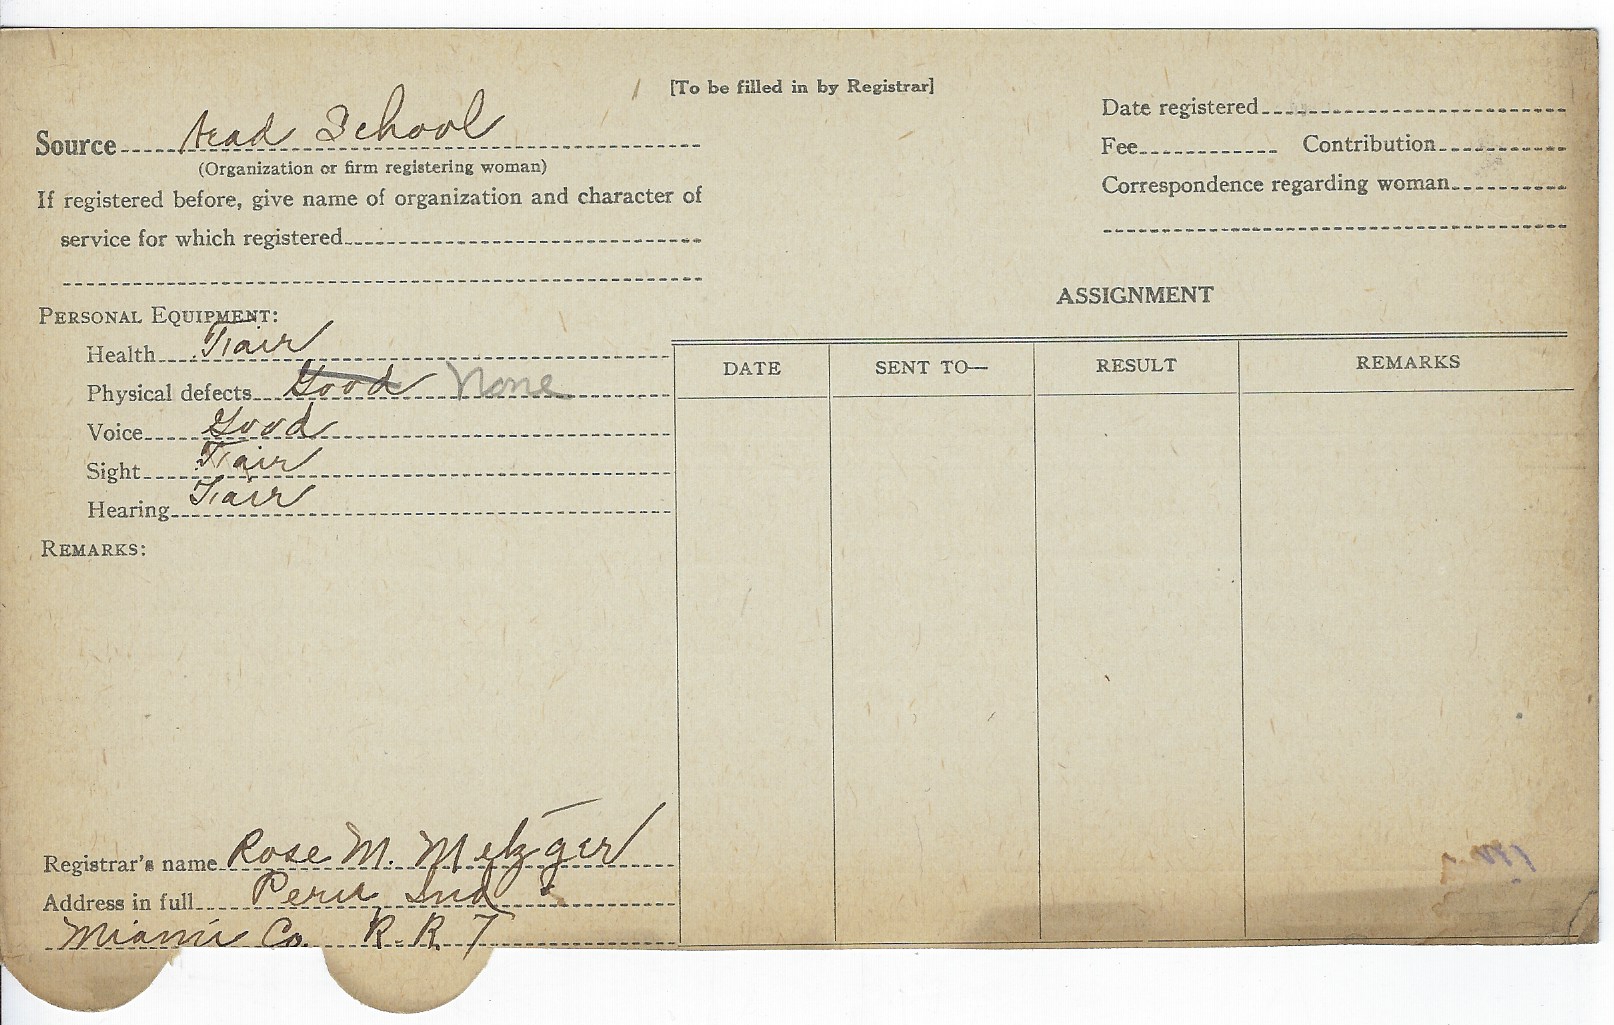 [To be filled in by Registrar]
Source School
(Organization or firm registering woman)
If registered before, give name of organization and character of
service for which registered
Date registered
Fee Contribution
Correspondence regarding woman
PERSONAL EQUIPMENT:
Health Fair
Physical defects Good None
Voice Good
Sight Fair
Hearing Fair
REMARKS:
ASSIGNMENT
DATE SENT TO— RESULT REMARKS
Registrar's name Rose M. Metzger
Address in full Peru Ind
Miami Co. R. R. 7